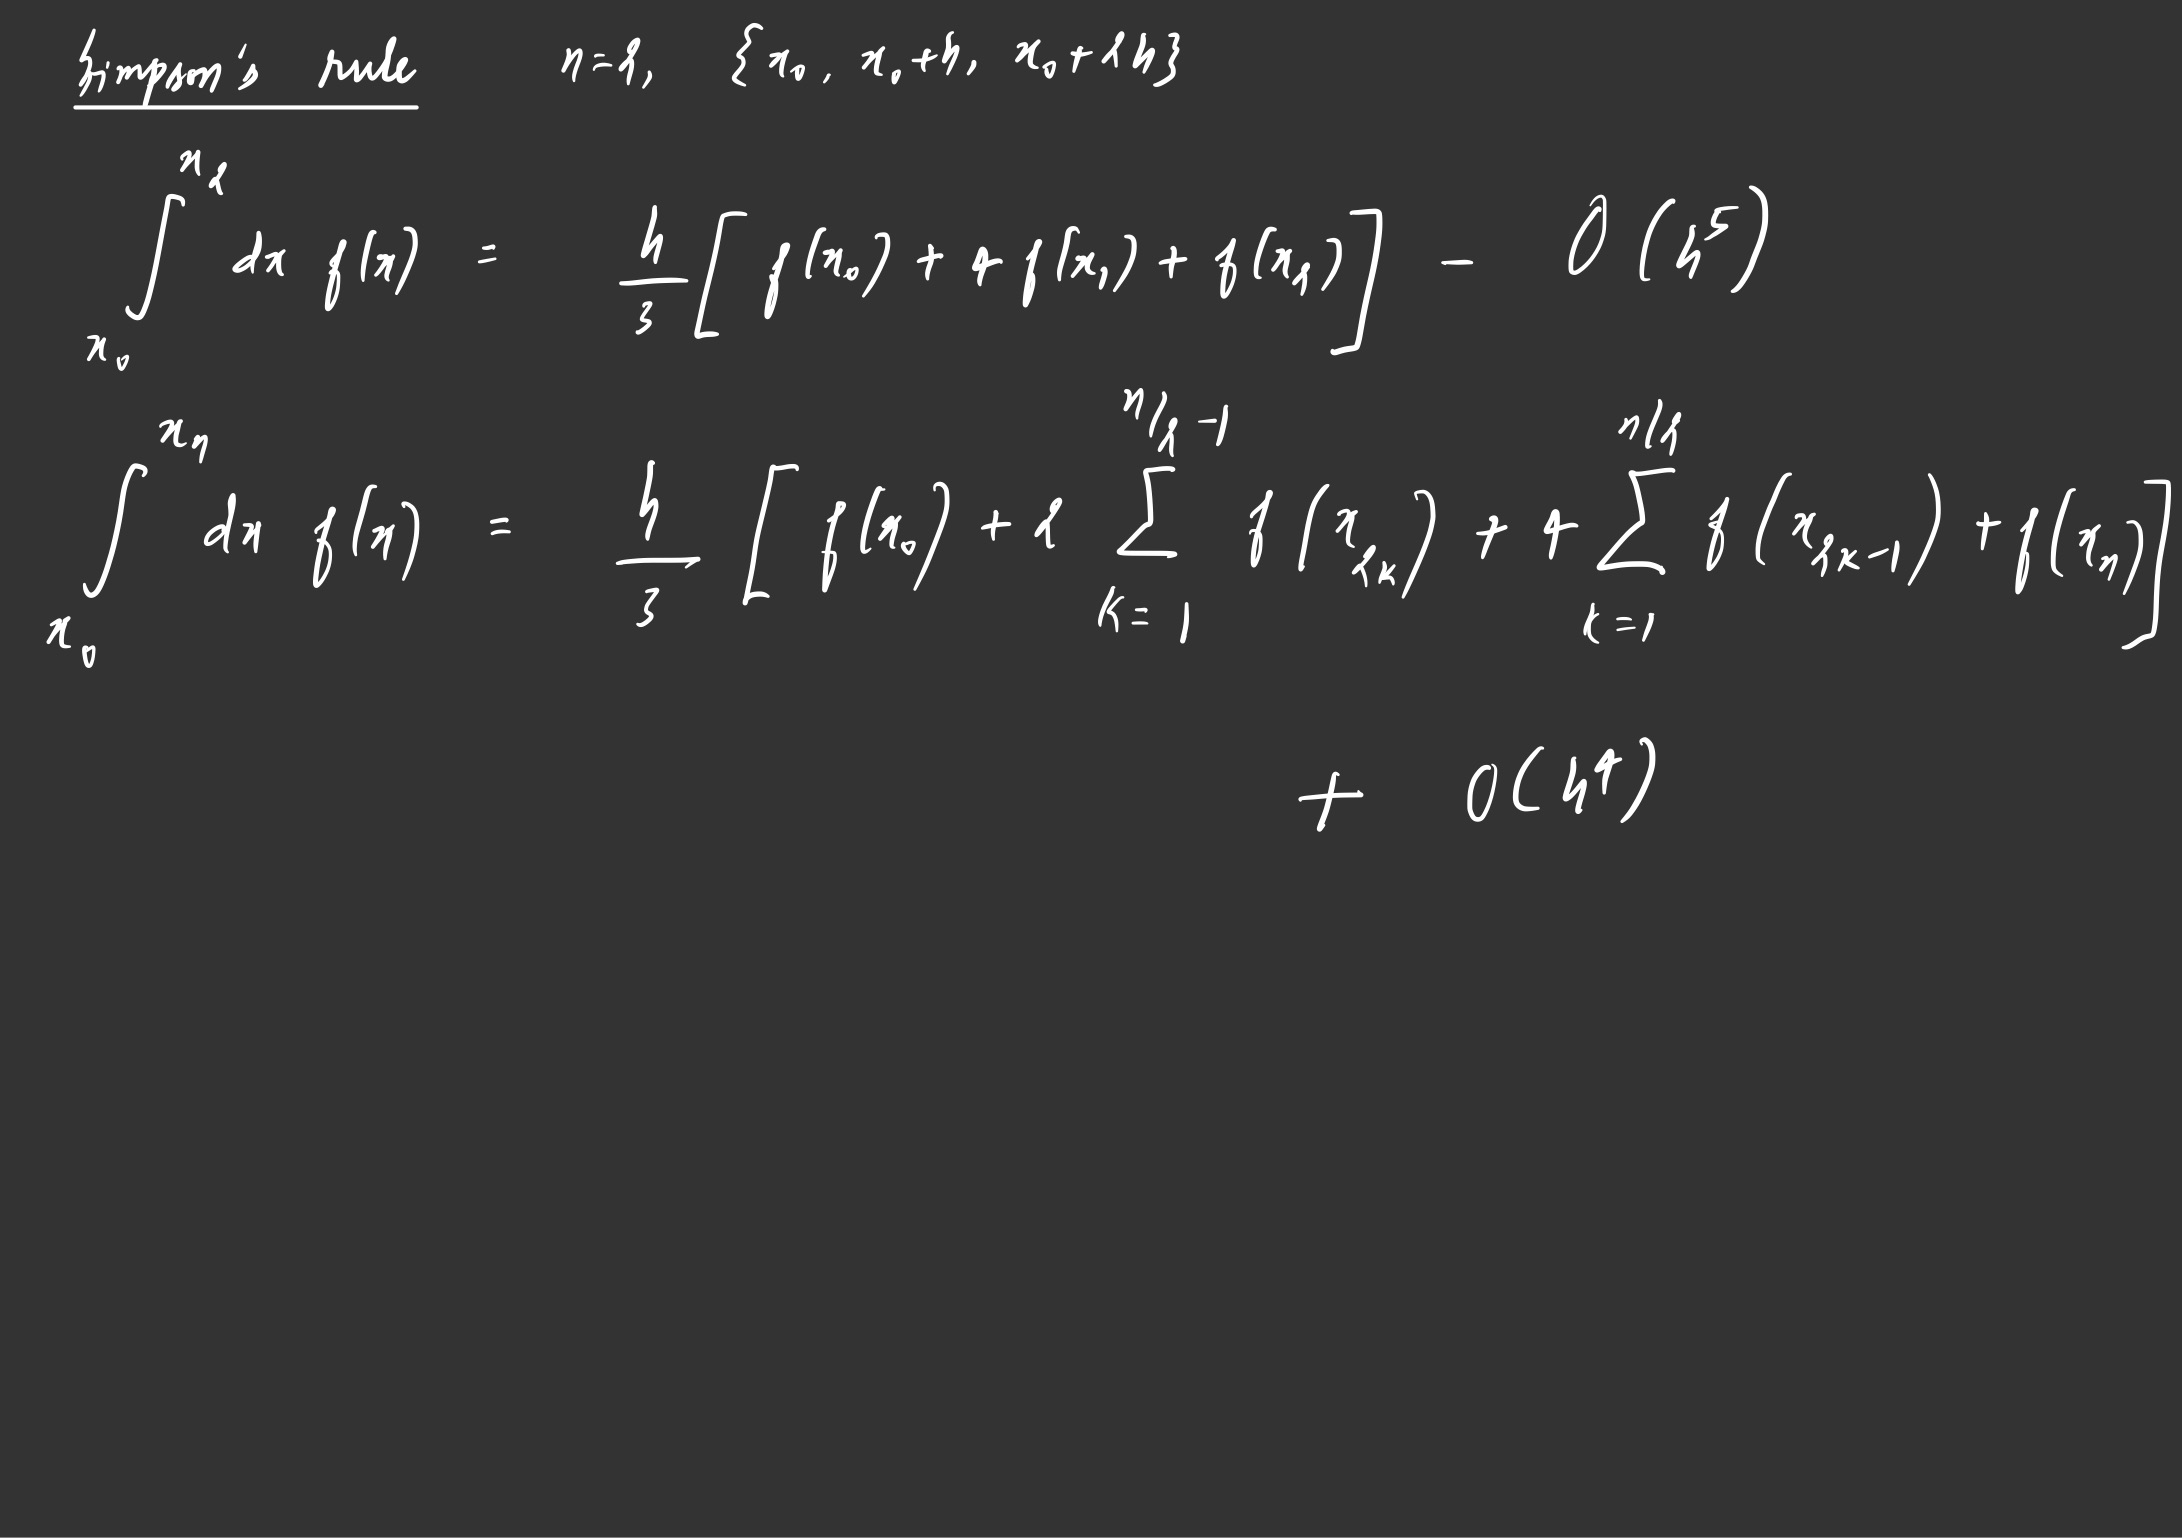 Simpson's rule n=2, {x₀, x₀+h, x₀+2h}
∫_{x₀}^{x₂} dx f(x) = h/3 [f(x₀) + 4 f(x₁) + f(x₂)] - O(h⁵)
∫_{x₀}^{xₙ} dx f(x) = h/3 [f(x₀) + 2 ∑_{k=1}^{n/2 -1} f(x_{2k}) + 4 ∑_{k=1}^{n/2} f(x_{2k-1}) + f(xₙ)]
+ O(h⁴)